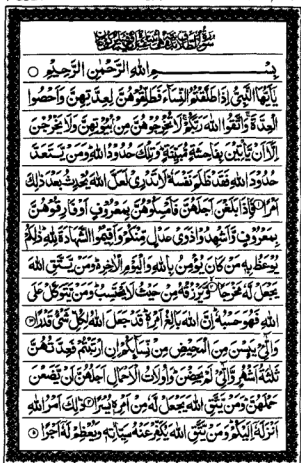 بِسْمِ اللهِ الرَّحْمٰنِ الرَّحِيْمِ
يٰۤاَيُّهَا النَّبِىُّ اِذَا طَلَّقْتُمُ النِّسَآءَ فَطَلِّقُوْهُنَّ لِعِدَّتِهِنَّ وَاَحْصُوا
الْعِدَّةَ وَاتَّقُوا اللهَ رَبَّكُمْ لَا تُخْرِجُوْهُنَّ مِنْۢ بُيُوْتِهِنَّ وَلَا يَخْرُجْنَ
اِلَّاۤ اَنْ يَّاْتِيْنَ بِفَاحِشَةٍ مُّبَيِّنَةٍ وَتِلْكَ حُدُوْدُ اللهِ وَمَنْ يَّتَعَدَّ
حُدُوْدَ اللهِ فَقَدْ ظَلَمَ نَفْسَهٗ لَا تَدْرِىْ لَعَلَّ اللهَ يُحْدِثُ بَعْدَ ذٰلِكَ
اَمْرًا فَاِذَا بَلَغْنَ اَجَلَهُنَّ فَاَمْسِكُوْهُنَّ بِمَعْرُوْفٍ اَوْ فَارِقُوْهُنَّ
بِمَعْرُوْفٍ وَّاَشْهِدُوْا ذَوَىْ عَدْلٍ مِّنْكُمْ وَاَقِيْمُوا الشَّهَادَةَ لِلّٰهِ ذٰلِكُمْ
يُوْعَظُ بِهٖ مَنْ كَانَ يُؤْمِنُ بِاللهِ وَالْيَوْمِ الْاٰخِرِ وَمَنْ يَّتَّقِ اللهَ
يَجْعَلْ لَّهٗ مَخْرَجًا وَّيَرْزُقْهُ مِنْ حَيْثُ لَا يَحْتَسِبُ وَمَنْ يَّتَوَكَّلْ عَلَى
اللهِ فَهُوَ حَسْبُهٗ اِنَّ اللهَ بَالِغُ اَمْرِهٖ قَدْ جَعَلَ اللهُ لِكُلِّ شَىْءٍ قَدْرًا
وَالّٰٓـئِىْ يَئِسْنَ مِنَ الْمَحِيْضِ مِنْ نِّسَآئِكُمْ اِنِ ارْتَبْتُمْ فَعِدَّتُهُنَّ
ثَلٰثَةُ اَشْهُرٍ وَّالّٰٓـئِىْ لَمْ يَحِضْنَ وَاُولَاتُ الْاَحْمَالِ اَجَلُهُنَّ اَنْ يَّضَعْنَ
حَمْلَهُنَّ وَمَنْ يَّتَّقِ اللهَ يَجْعَلْ لَّهٗ مِنْ اَمْرِهٖ يُسْرًا ذٰلِكَ اَمْرُ اللهِ
اَنْزَلَهٗۤ اِلَيْكُمْ وَمَنْ يَّتَّقِ اللهَ يُكَفِّرْ عَنْهُ سَيِّاٰتِهٖ وَيُعْظِمْ لَهٗۤ اَجْرًا